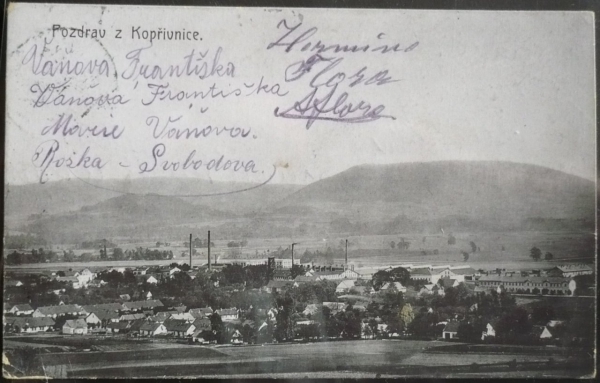 Pozdrav z Kopřivnice.
Váňova Františka
Váňová Františka
Marie Váňova.
Roška - Svobodova.
Hermine
Flora